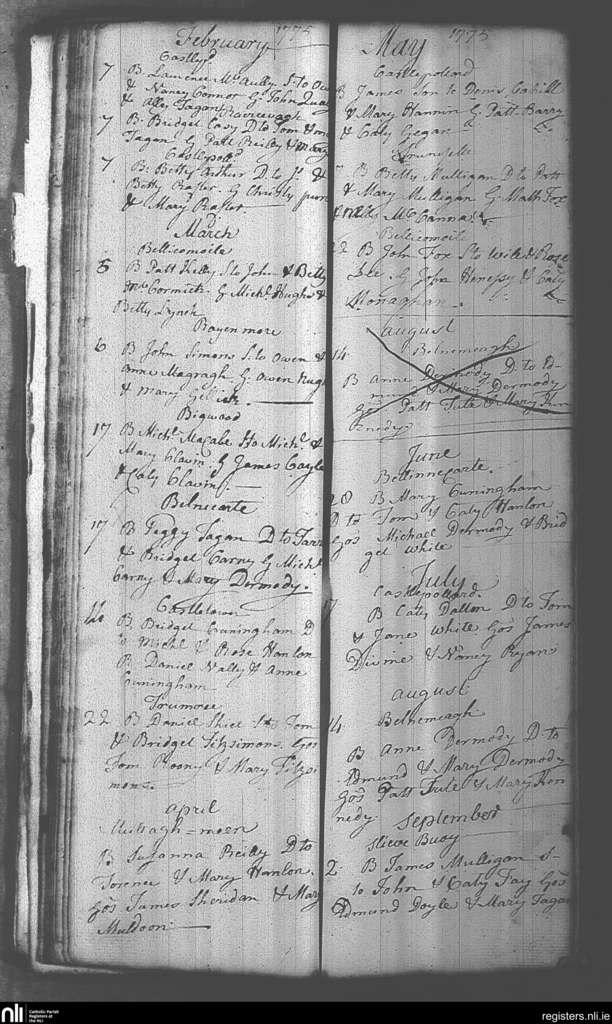 February 1775
Castlep
7 B Laurence McAulley S to
& Nancy Connor G John
& Alley Fagan
7 B. Bridget Casy D to Tom &
Fagan G Patt Reilly & Mary
Castlepoll
7 B: Betty Arthur D to Js &
Betty G Christy
& Mary
March
Bellicomoile
8 B Patt Kelly S to John & Betty
McCormick G Michl Hughs &
Betty Lynch
Rayenmore
6 B John Simons S. to Owen &
Anne Magragh G Owen
& Mary
Bigwood
17 B Michl Macabe to Michl &
Mary Clavin G James Coyle
& Caty Clavin
Belnecarte
17 B Peggy Fagan D to
& Bridget Carny G Michl
Carny & Mary Dermody.
Castletown
B Bridget Cuningham D
to Michl & Rose Hanlon
Daniel Nalty & Anne
Cuningham
Frumore
22 B Daniel Shiel S to Tom
& Bridget Fitzsimons Gos
Tom Roony & Mary Fitzsi
mons.
April
B Susanna Reilly D to
Terence & Mary Hanlon.
Gos James Sheridan & Mary
Muldoon
1775
May
Castlepollard
B James Son to Denis Cahill
& Mary Hannin G Patt Barry
& Caty Gegan
B Betty Mulligan D to Patt
& Mary Mulligan G Math Fox
McCanna
Bellicomoile
22 B John Fox S to Will & Rose
G John Henessy & Caty
Monaghan
August
14 Belnemeagh
B Anne Dermody D to Ed-
& Mary Dermody
Gos Patt Tute & Mary Ken
nedy
June
Bellinnecarte.
28 B Mary Cuningham
D to Tom & Caty Hanlon
Gos Michael Dermody & Brid
get White
July
Castlepollard.
B Caty Dalton D to Tom
& Jane White Gos James
Divine & Nancy Ryan
August
14 Belnemeagh
B Anne Dermody D to
Edmund & Mary Dermody
Gos Patt Tute & Mary Ken
nedy
September
Slieve Buoy
2 B James Mulligan S-
to John & Caty Fay Gos
Edmund Doyle & Mary Fagan
nli Catholic Parish
Registers at
the NLI
registers.nli.ie